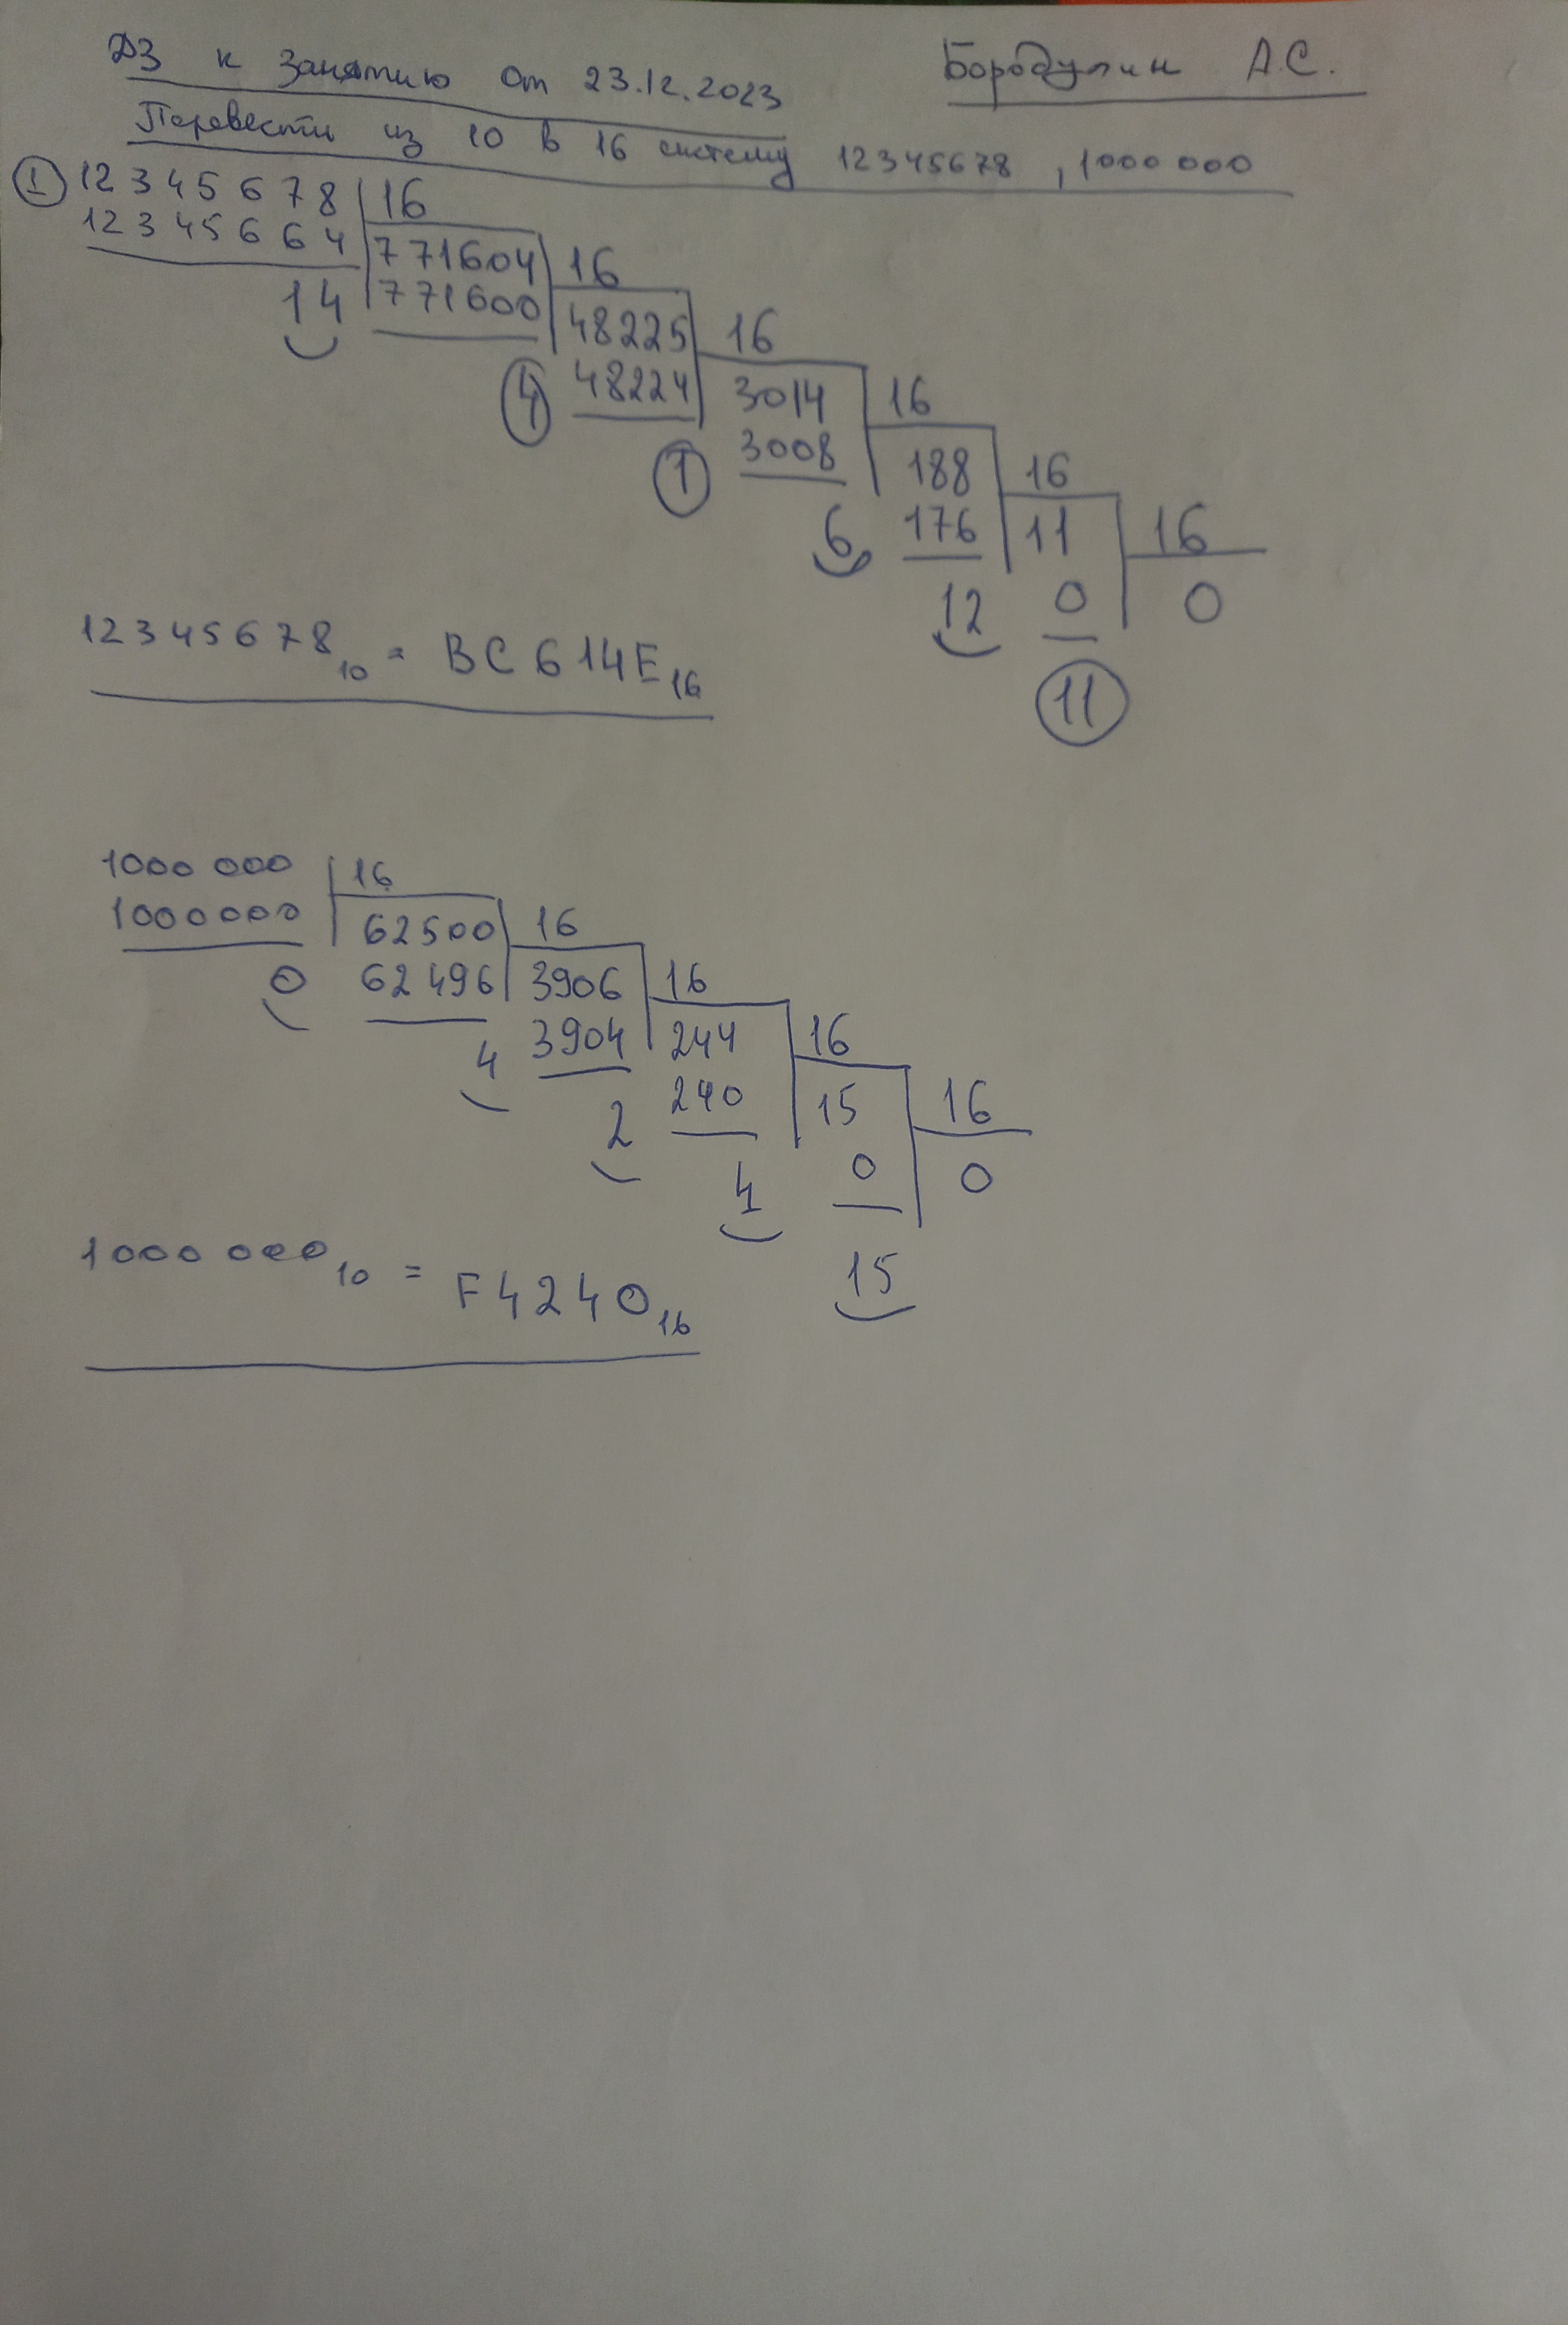 ДЗ к занятию от 23.12.2023 Бородулин А.С.
Перевести из 10 в 16 систему 12345678, 1000 000
1 12345678 16
12345664 771604 16
14 771600 48225 16
4 48224 3014 16
1 3008 188 16
6 176 11 16
12 0 0
11
12345678₁₀ = BC614E₁₆
1000 000 16
1000000 62500 16
0 62496 3906 16
4 3904 244 16
2 240 15 16
4 0 0
15
1000 000₁₀ = F4240₁₆